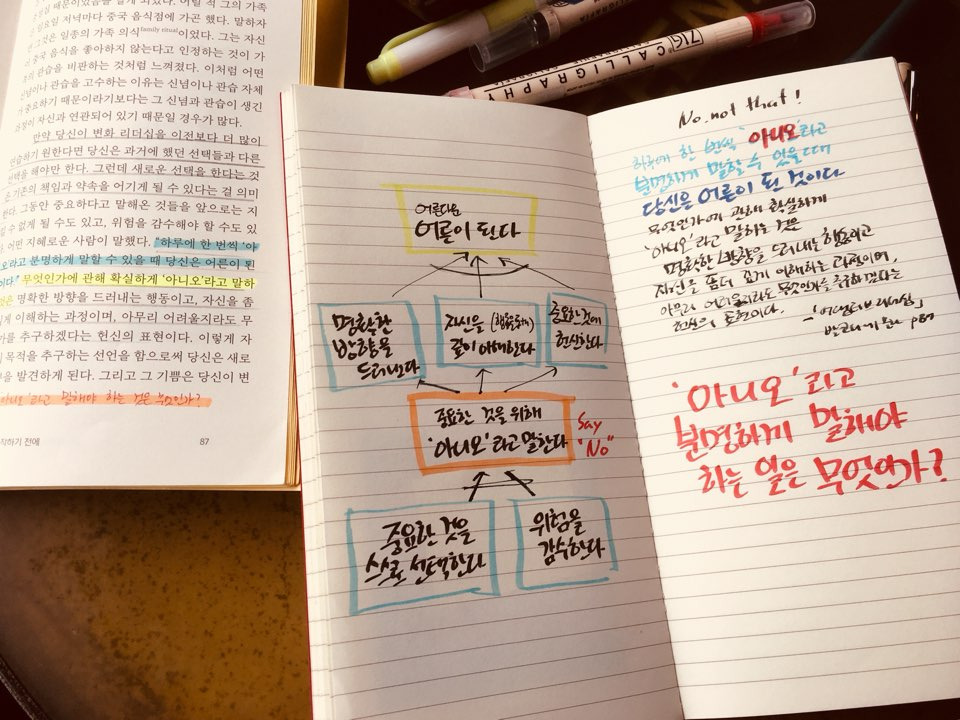 때문이었음을 알게 되었다. 어릴 적 그의 가족
일요일 저녁마다 중국 음식점에 가곤 했다. 말하자
그것은 일종의 가족 의식family ritual이었다. 그는 자신
중국 음식을 좋아하지 않는다고 인정하는 것이 가
의 관습을 비판하는 것처럼 느껴졌다. 이처럼 어떤
신념이나 관습을 고수하는 이유는 신념이나 관습 자체
가 중요하기 때문이라기보다는 그 신념과 관습이 생긴
과정이 자신과 연관되어 있기 때문일 경우가 많다.
만약 당신이 변화 리더십을 이전보다 더 많이
연습하기 원한다면 당신은 과거에 했던 선택들과 다른
선택을 해야만 한다. 그런데 새로운 선택을 한다는 것
은 기존의 책임과 약속을 어기게 될 수 있다는 걸 의미
한다. 그동안 중요하다고 말해온 것들을 앞으로는 지
킬 수 없게 될 수도 있고, 위험을 감수해야 할 수도 있
다. 어떤 지혜로운 사람이 말했다. "하루에 한 번씩 '아
니오'라고 분명하게 말할 수 있을 때 당신은 어른이 된
것이다." 무엇인가에 관해 확실하게 '아니오'라고 말하
는 것은 명확한 방향을 드러내는 행동이고, 자신을 좀
깊게 이해하는 과정이며, 아무리 어려울지라도 무
를 추구하겠다는 헌신의 표현이다. 이렇게 자
목적을 추구하는 선언을 함으로써 당신은 새로
을 발견하게 된다. 그리고 그 기쁨은 당신이 변
'아니오'라고 말해야 하는 것은 무엇인가?
작하기 전에 87
716 CALLIGRAPHY
어른다운
어른이 된다
명확한
방향을
드러낸다
자신을 (행동을)
깊이 이해한다
중요한 것에
헌신한다
중요한 것을 위해
'아니오'라고 말한다
Say
"No"
중요한 것을
스스로 선택한다
위험을
감수한다
No. not that!
하루에 한 번씩 '아니오'라고
분명하게 말할 수 있을 때
당신은 어른이 된 것이다
무엇인가에 관해 확실하게
'아니오'라고 말하는 것은
명확한 방향을 드러내는 행동이고
자신을 좀더 깊게 이해하는 과정이며,
아무리 어려울지라도 무엇인가를 추구하겠다는
헌신의 표현이다.
p87
'아니오'라고
분명하게 말해야
하는 일은 무엇인가?